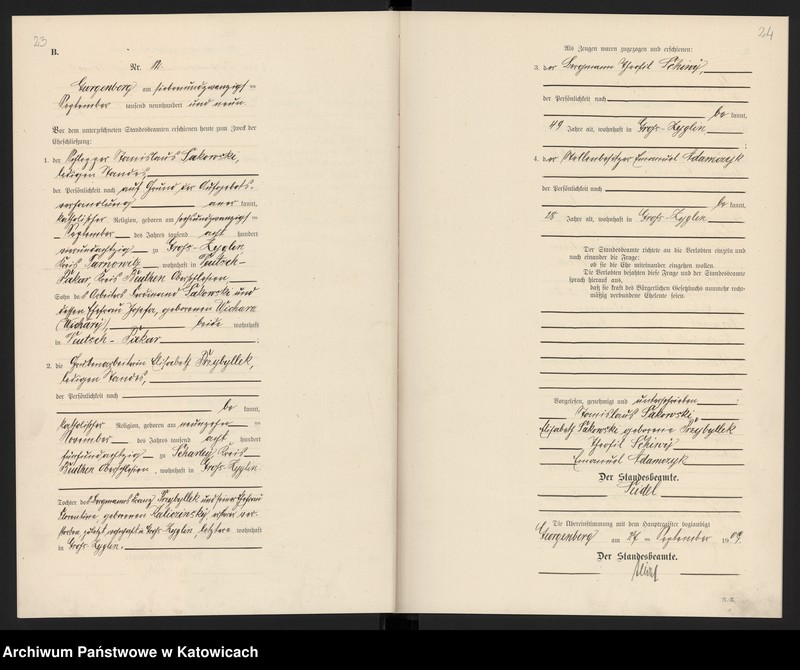 23
B.
Nr. 12.
Georgenberg am siebenundzwanzigs ten
September tausend neunhundert und neun.
Vor dem unterzeichneten Standesbeamten erschienen heute zum Zweck der
Eheschließung:
1. der Stanislaus Pakowski,
ledigen Standes,
der Persönlichkeit nach auf Grund der Aufgebots-
verhandlung aner kannt,
katholischer Religion, geboren am sechsundzwanzigs ten
September des Jahres tausend acht hundert
vierundachtzig zu Groß-Zyglin
Kreis Tarnowitz, wohnhaft in Deutsch-
Piekar, Kreis Beuthen Oberschlesien,
Sohn des Arbeiters Ferdinand Pakowski und
dessen Ehefrau Josefa, geborenen
beide wohnhaft
in Deutsch-Piekar.
2. die Grubenarbeiterin Elisabeth Przybyllek,
ledigen Standes,
der Persönlichkeit nach
be kannt,
katholischer Religion, geboren am neunzehn ten
November des Jahres tausend acht hundert
fünfundachtzig zu Scharley, Kreis
Beuthen Oberschlesien, wohnhaft in Groß-Zyglin
Tochter des Bergmanns Franz Przybyllek und seiner Ehefrau
Florentine, geborenen ersterer ver-
storben, zuletzt wohnhaft in Groß-Zyglin, letztere wohnhaft
in Groß-Zyglin.
24
Als Zeugen waren zugezogen und erschienen:
3. der Bergmann Theofil
der Persönlichkeit nach
be kannt,
49 Jahre alt, wohnhaft in Groß-Zyglin
;
4. der Stellenbesitzer Emanuel Adamczyk
der Persönlichkeit nach
be kannt,
28 Jahre alt, wohnhaft in Groß-Zyglin
Der Standesbeamte richtete an die Verlobten einzeln und
nach einander die Frage:
ob sie die Ehe miteinander eingehen wollen.
Die Verlobten bejahten diese Frage und der Standesbeamte
sprach hierauf aus,
daß sie kraft des Bürgerlichen Gesetzbuchs nunmehr recht-
mäßig verbundene Eheleute seien.
Vorgelesen, genehmigt und unterschrieben:
Stanislaus Pakowski
Elisabeth Pakowski geborene Przybyllek
Theofil
Emanuel Adamczyk
Der Standesbeamte.
Seidel
Die Übereinstimmung mit dem Hauptregister beglaubigt
Georgenberg am 27 ten September 1909.
Der Standesbeamte.
Archiwum Państwowe w Katowicach